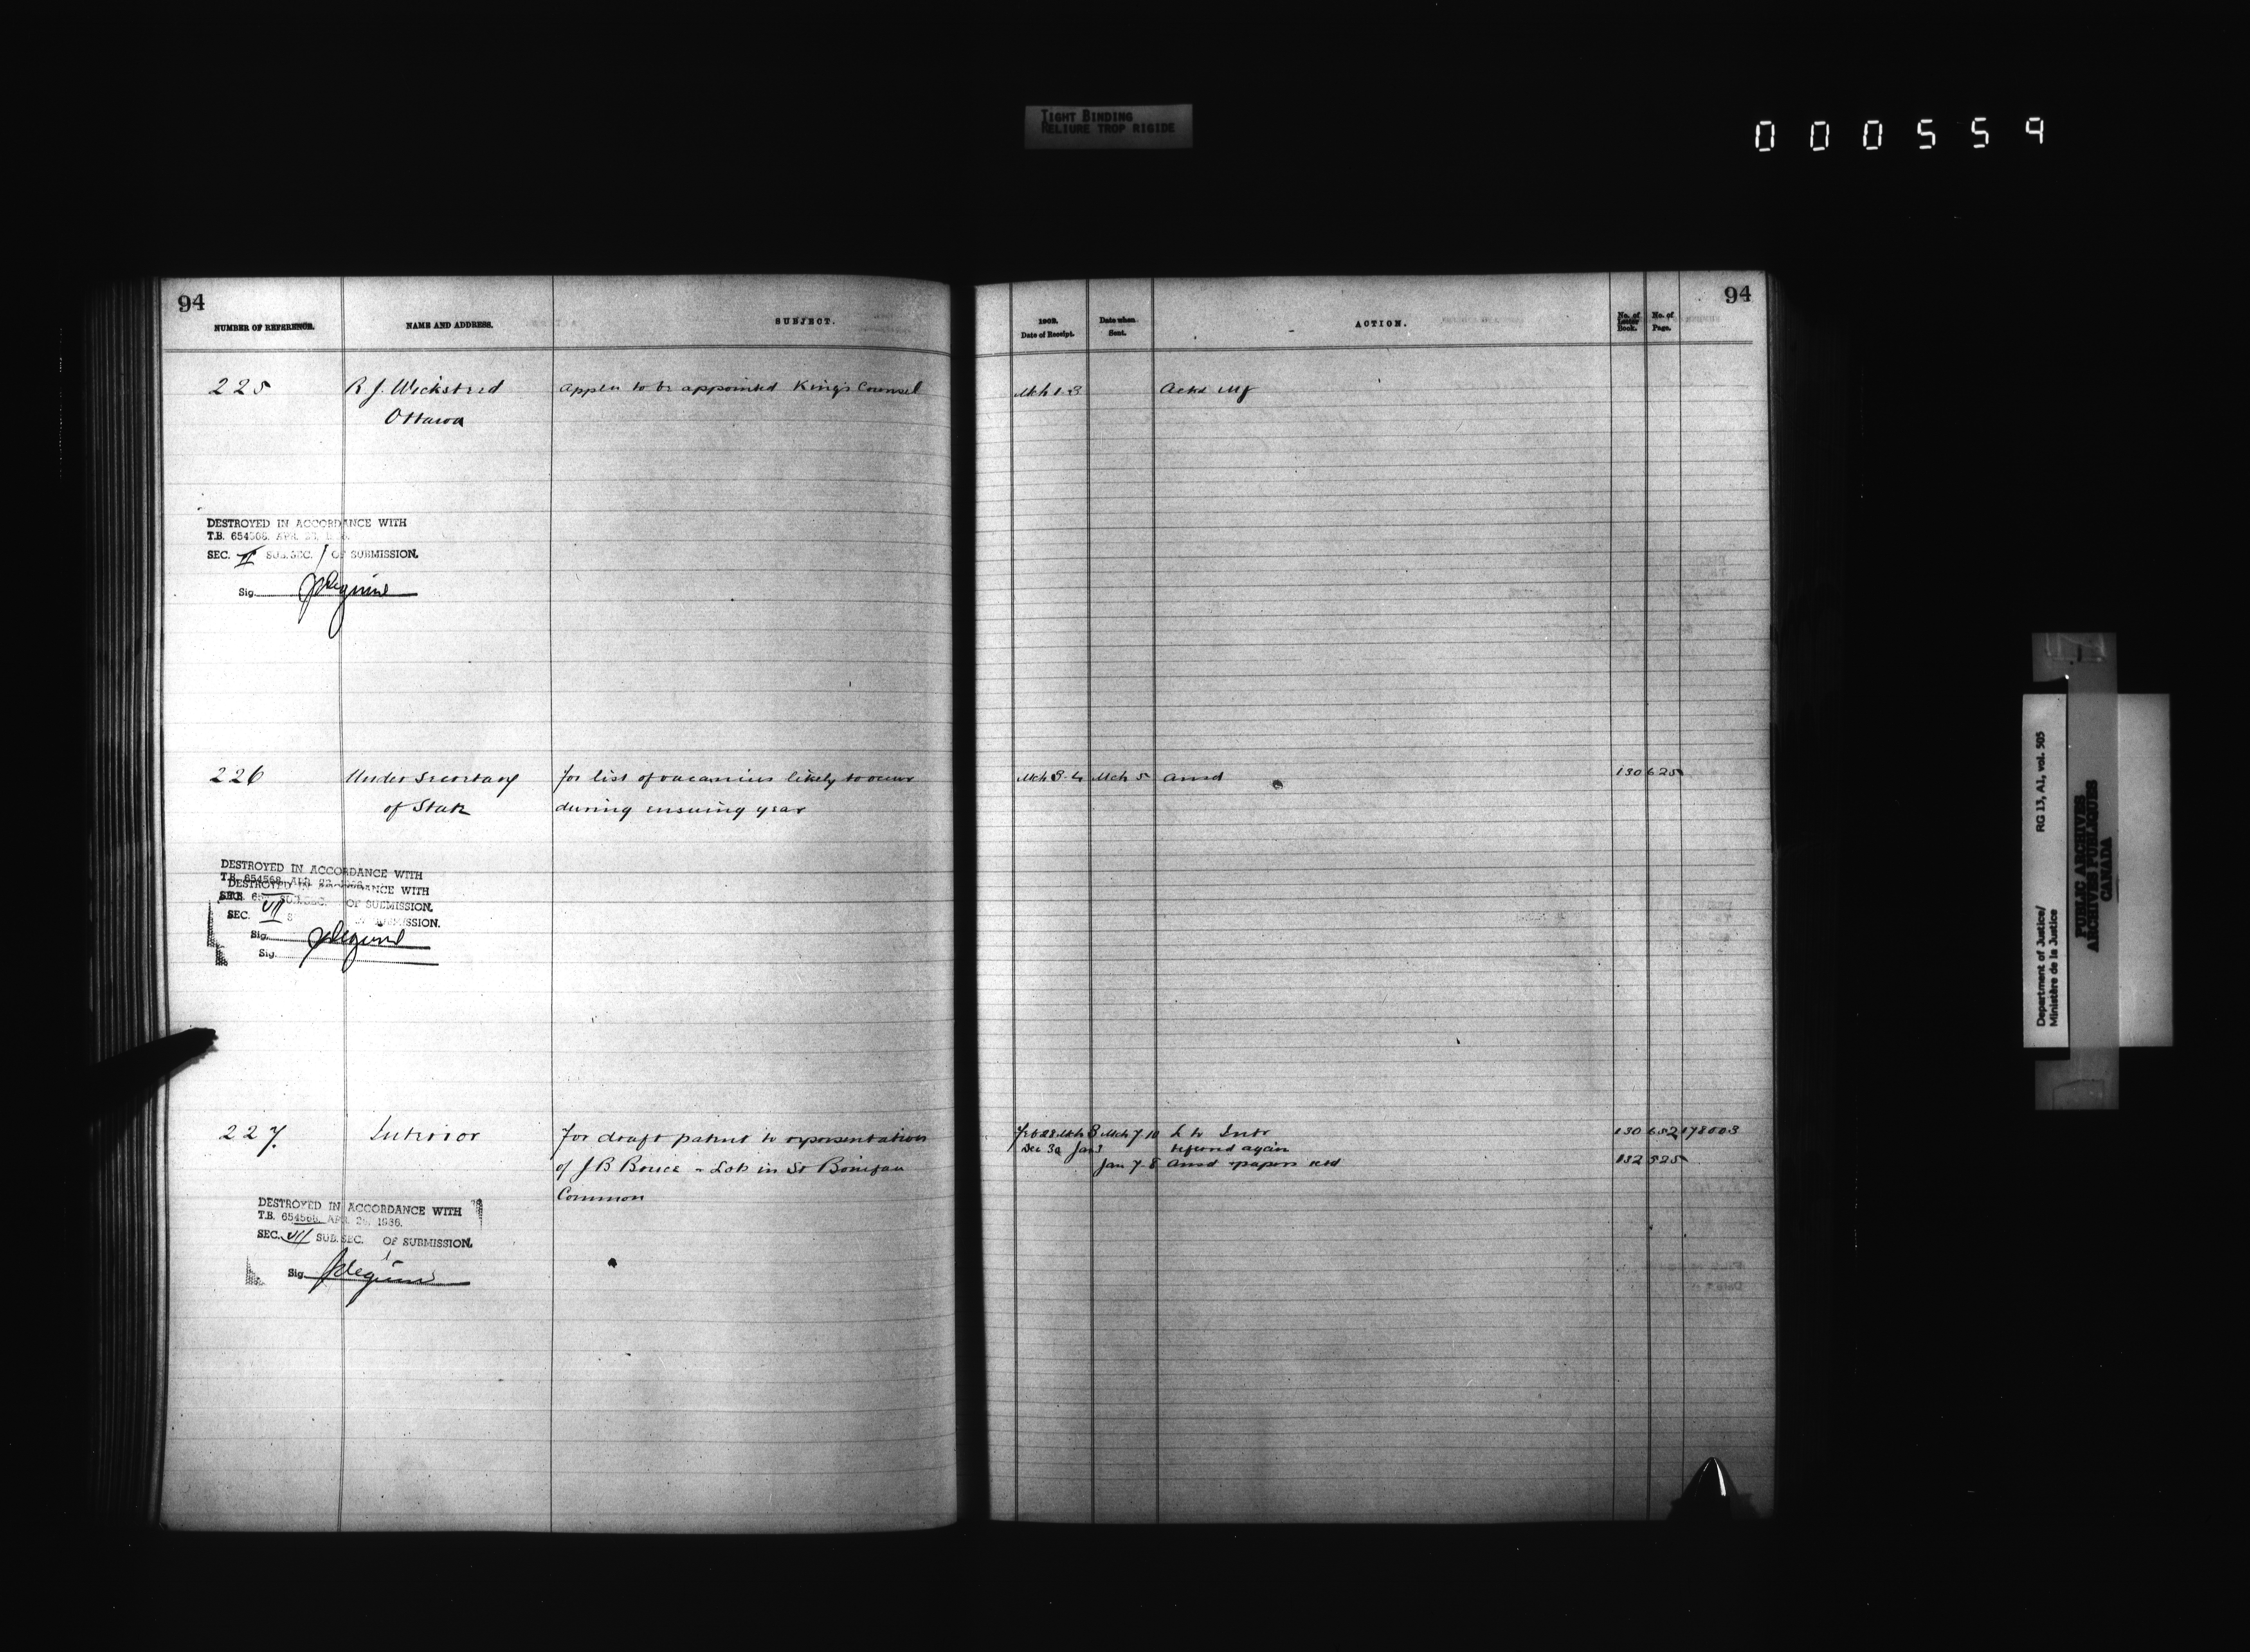 TIGHT BINDING
RELIURE TROP RIGIDE
000559
94
NUMBER OF REFERENCE. NAME AND ADDRESS. SUBJECT.
225 R J. Wickstead appln to be appointed King's Counsel
Ottawa
DESTROYED IN ACCORDANCE WITH
T.B. 654568, APR. 
SEC. VI SUB. SEC. 1 OF SUBMISSION.
Sig.
226 Under Secretary for list of vacancies likely to occur
of State during ensuing year
DESTROYED IN ACCORDANCE WITH
T.B. 654568, APR. 
DESTROYED IN ACCORDANCE WITH
SUB. SEC. OF SUBMISSION.
SEC. VII SUBMISSION.
Sig.
Sig.
227. Interior for draft patent to representatives
of J B - Lots in St Boniface
Common
DESTROYED IN ACCORDANCE WITH
T.B. 654568, APR. 1936.
SEC. VII SUB. SEC. OF SUBMISSION.
Sig.
94
1902. Date of Receipt. Date when Sent. ACTION. No. of Letter Book. No. of Page.
Mch 1.3 Ackd
Mch 3.4 Mch 5 ansd 130 625
Feb 28 Mch 3 Mch 7 10 L to Intr 130 652 178003
Dec 30 Jan 3 referred again
Jan 7 8 ansd papers 132 525
Department of Justice/ RG 13, A1, vol. 505
Ministère de la Justice
PUBLIC ARCHIVES
ARCHIVES PUBLIQUES
CANADA